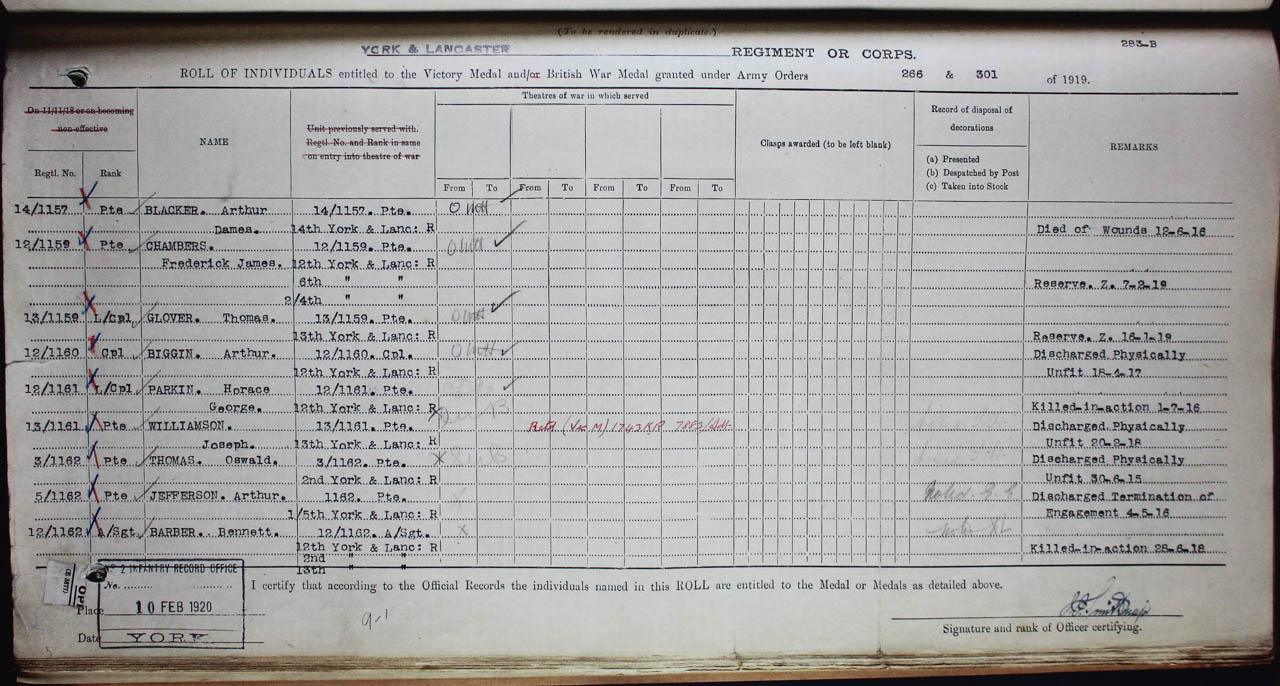 (To be rendered in duplicate.)
YORK & LANCASTER REGIMENT OR CORPS. 283-B
ROLL OF INDIVIDUALS entitled to the Victory Medal and/or British War Medal granted under Army Orders 266 & 301 of 1919.
On 11/11/18 or on becoming non-effective
Regtl. No. Rank
NAME
Unit previously served with.
Regtl. No. and Rank in same
on entry into theatre of war
Theatres of war in which served
From To From To From To From To
Clasps awarded (to be left blank)
Record of disposal of
decorations
(a) Presented
(b) Despatched by Post
(c) Taken into Stock
REMARKS
14/1157 Pte BLACKER. Arthur 14/1157. Pte.
Dames. 14th York & Lanc: R Died of Wounds 12-6-16
12/1159 Pte CHAMBERS. 12/1159. Pte.
Frederick James. 12th York & Lanc: R
6th " " Reserve. Z. 7-2-19
2/4th " "
13/1159 L/Cpl GLOVER. Thomas. 13/1159. Pte.
13th York & Lanc: R Reserve. Z. 16-1-19
12/1160 Cpl BIGGIN. Arthur. 12/1160. Cpl. Discharged Physically
12th York & Lanc: R Unfit 18-4-17
12/1161 L/Cpl PARKIN. Horace 12/1161. Pte.
George. 12th York & Lanc: R Killed-in-action 1-7-16
13/1161 Pte WILLIAMSON. 13/1161. Pte. Discharged Physically
Joseph. 13th York & Lanc: R Unfit 20-2-18
3/1162 Pte THOMAS. Oswald. 3/1162. Pte. Discharged Physically
2nd York & Lanc: R Unfit 30-6-15
5/1162 Pte JEFFERSON. Arthur. 1162. Pte. Discharged Termination of
1/5th York & Lanc: R Engagement 4-5-16
12/1162 A/Sgt. BARBER. Bennett. 12/1162. A/Sgt.
12th York & Lanc: R Killed-in-action 28-6-18
2nd " "
13th " "
No 2 INFANTRY RECORD OFFICE
No.
10 FEB 1920
YORK
Place
Date
I certify that according to the Official Records the individuals named in this ROLL are entitled to the Medal or Medals as detailed above.
9-1
Signature and rank of Officer certifying.